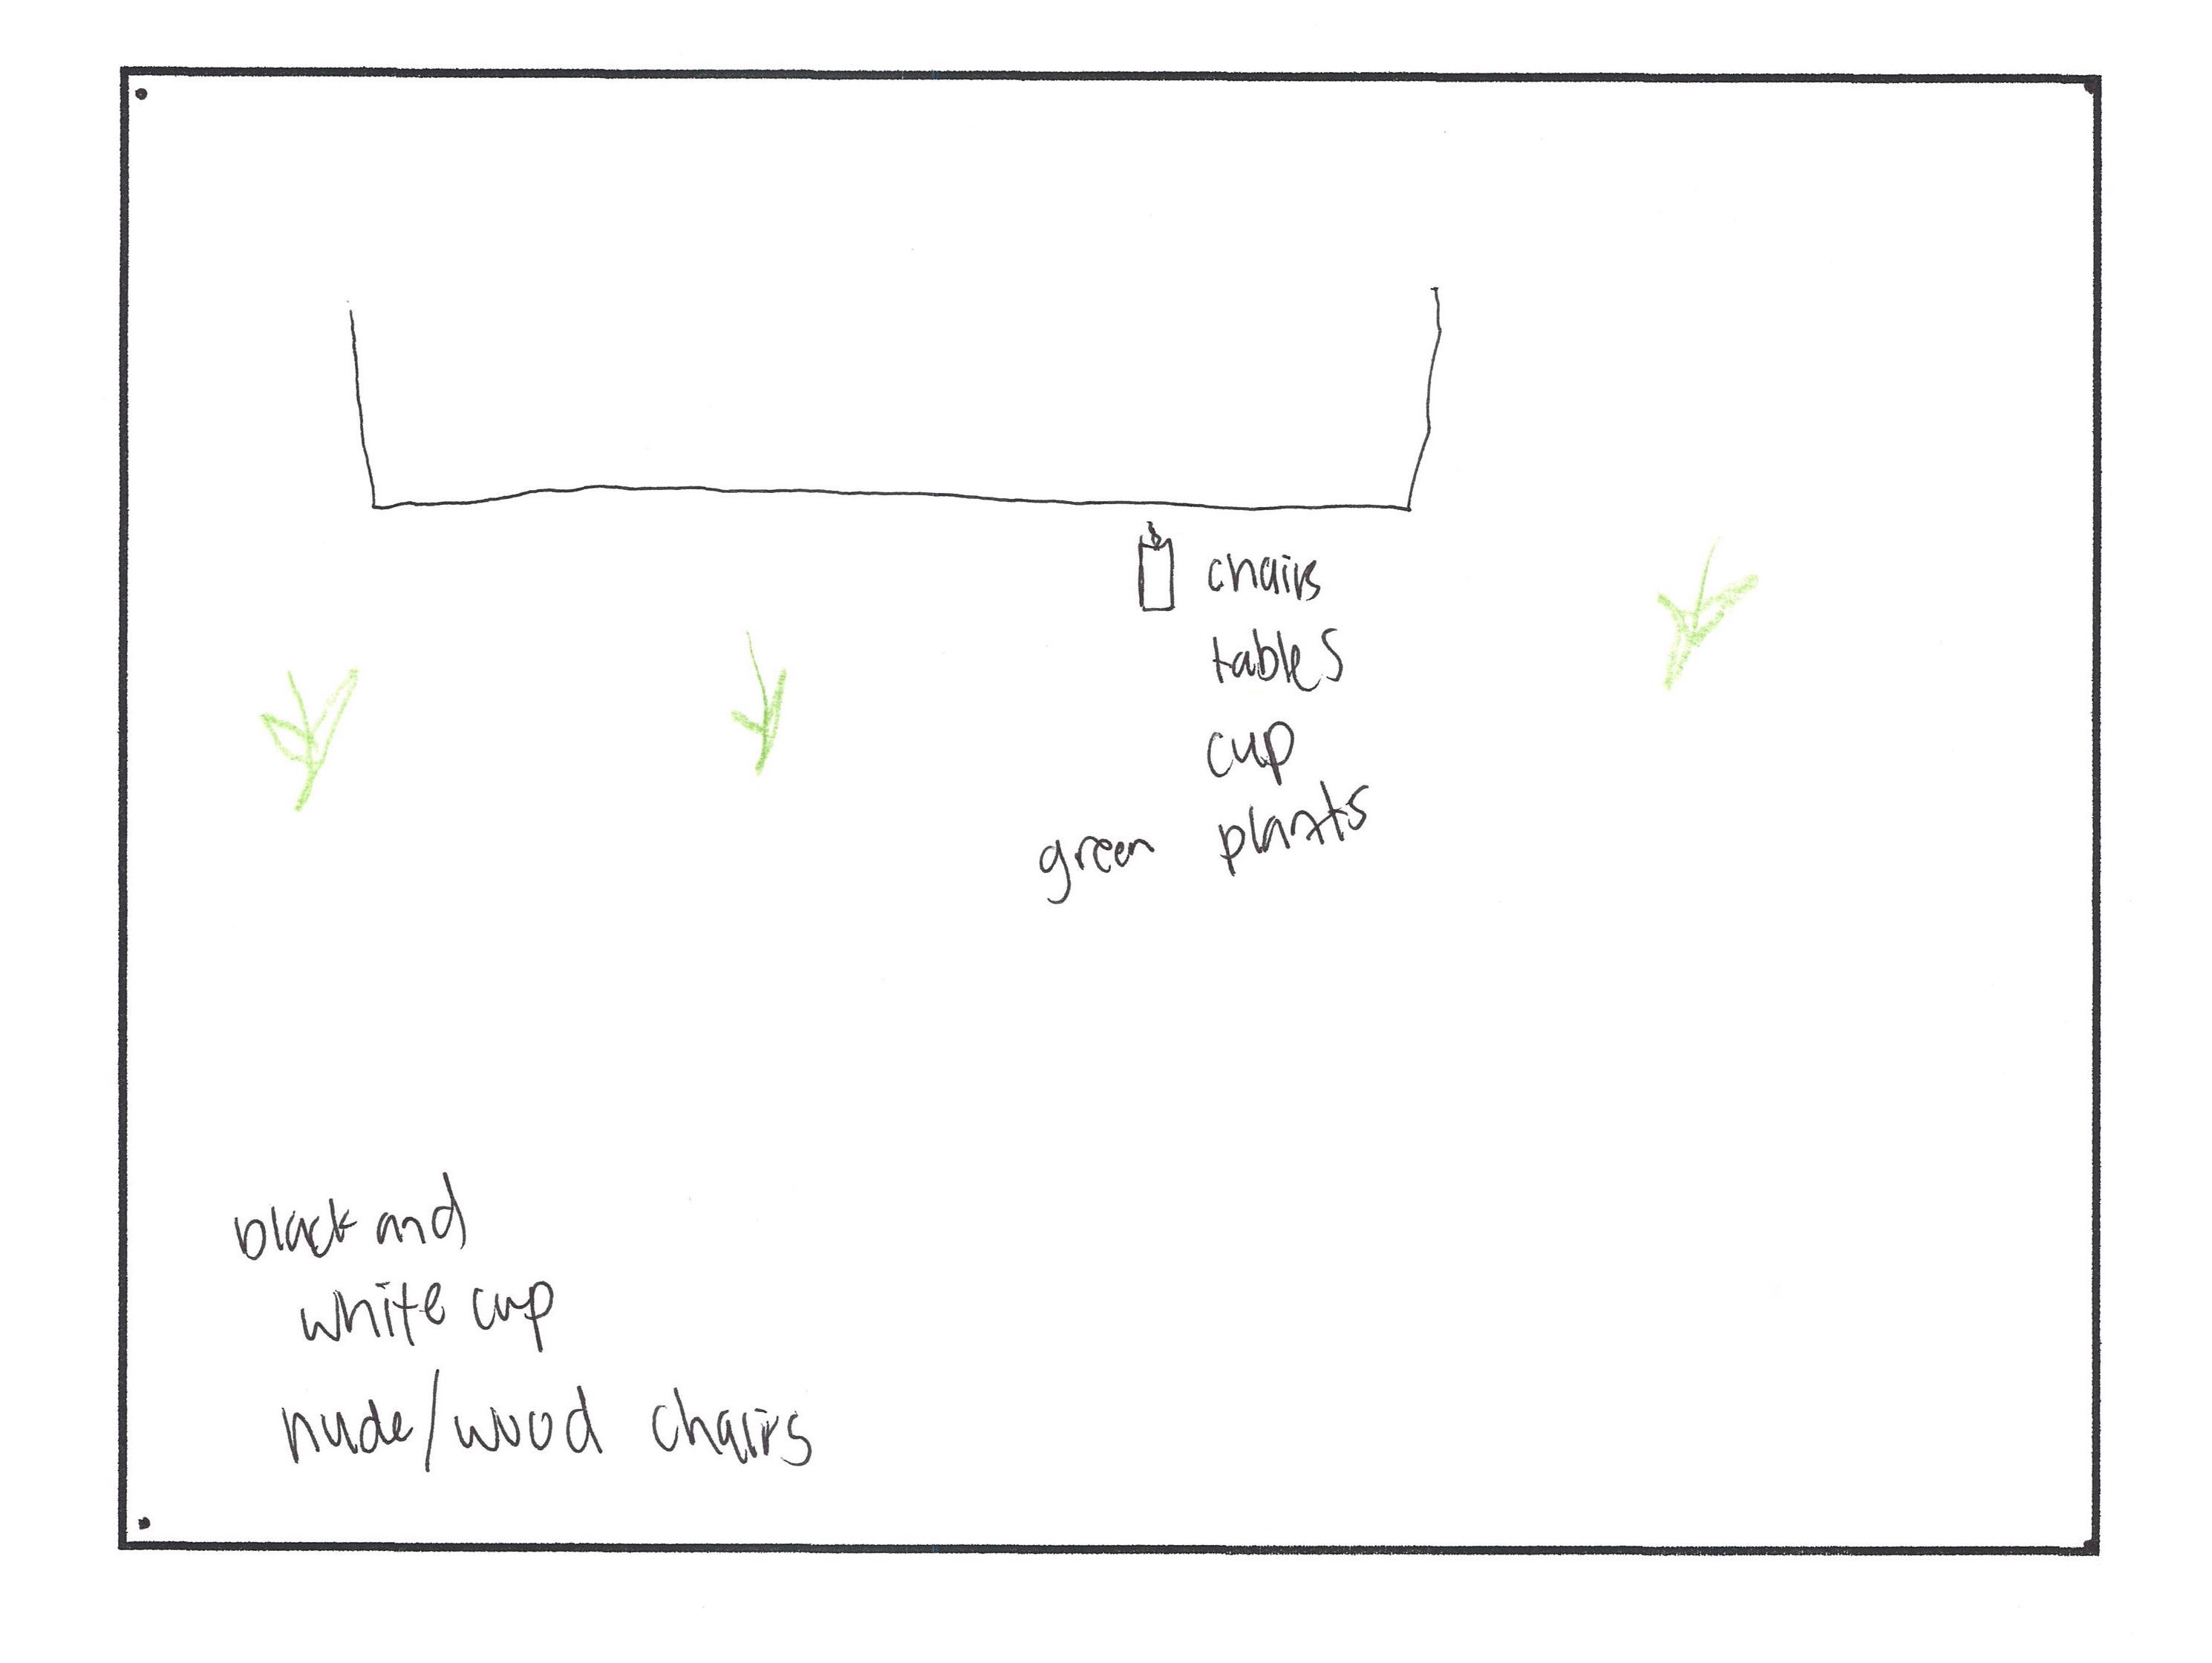 chairs
tables
cup
green plants
black and
white cup
nude/wood chairs